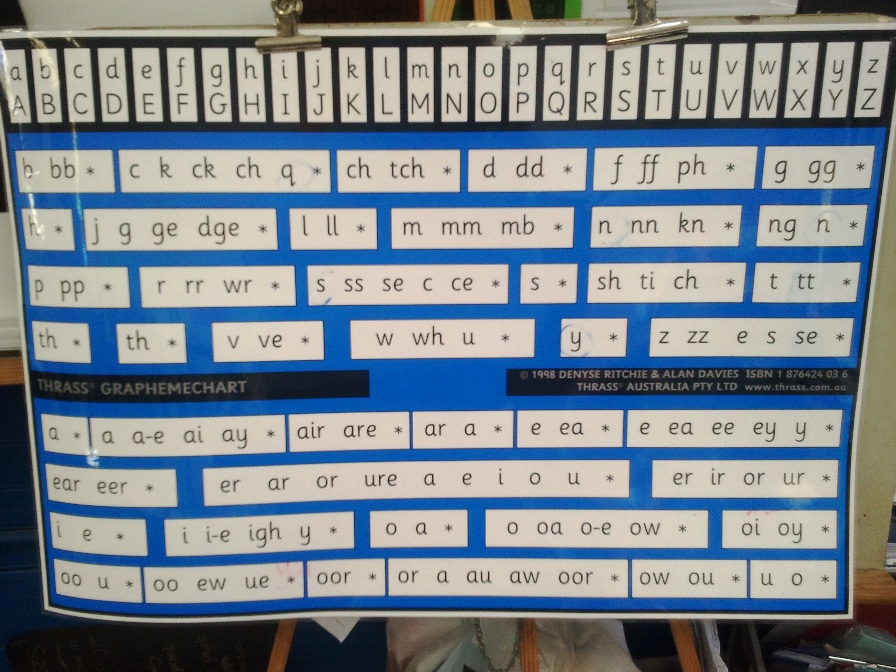 a b c d e f g h i j k l m n o p q r s t u v w x y z
A B C D E F G H I J K L M N O P Q R S T U V W X Y Z
b bb * c k ck ch q * ch tch * d dd * f ff ph * g gg *
h * j g ge dge * l ll * m mm mb * n nn kn * ng n *
p pp * r rr wr * s ss se c ce * s * sh ti ch * t tt *
th * th * v ve * w wh u * y * z zz e s se *
THRASS® GRAPHEMECHART
© 1998 DENYSE RITCHIE & ALAN DAVIES ISBN 1 876424 03 6
THRASS® AUSTRALIA PTY LTD www.thrass.com.au
a * a a-e ai ay * air are * ar a * e ea * e ea ee ey y *
ear eer * er ar or ure a e i o u * er ir or ur *
i e * i i-e igh y * o a * o oa o-e ow * oi oy *
oo u * oo ew ue * oor * or a au aw oor * ow ou * u o *